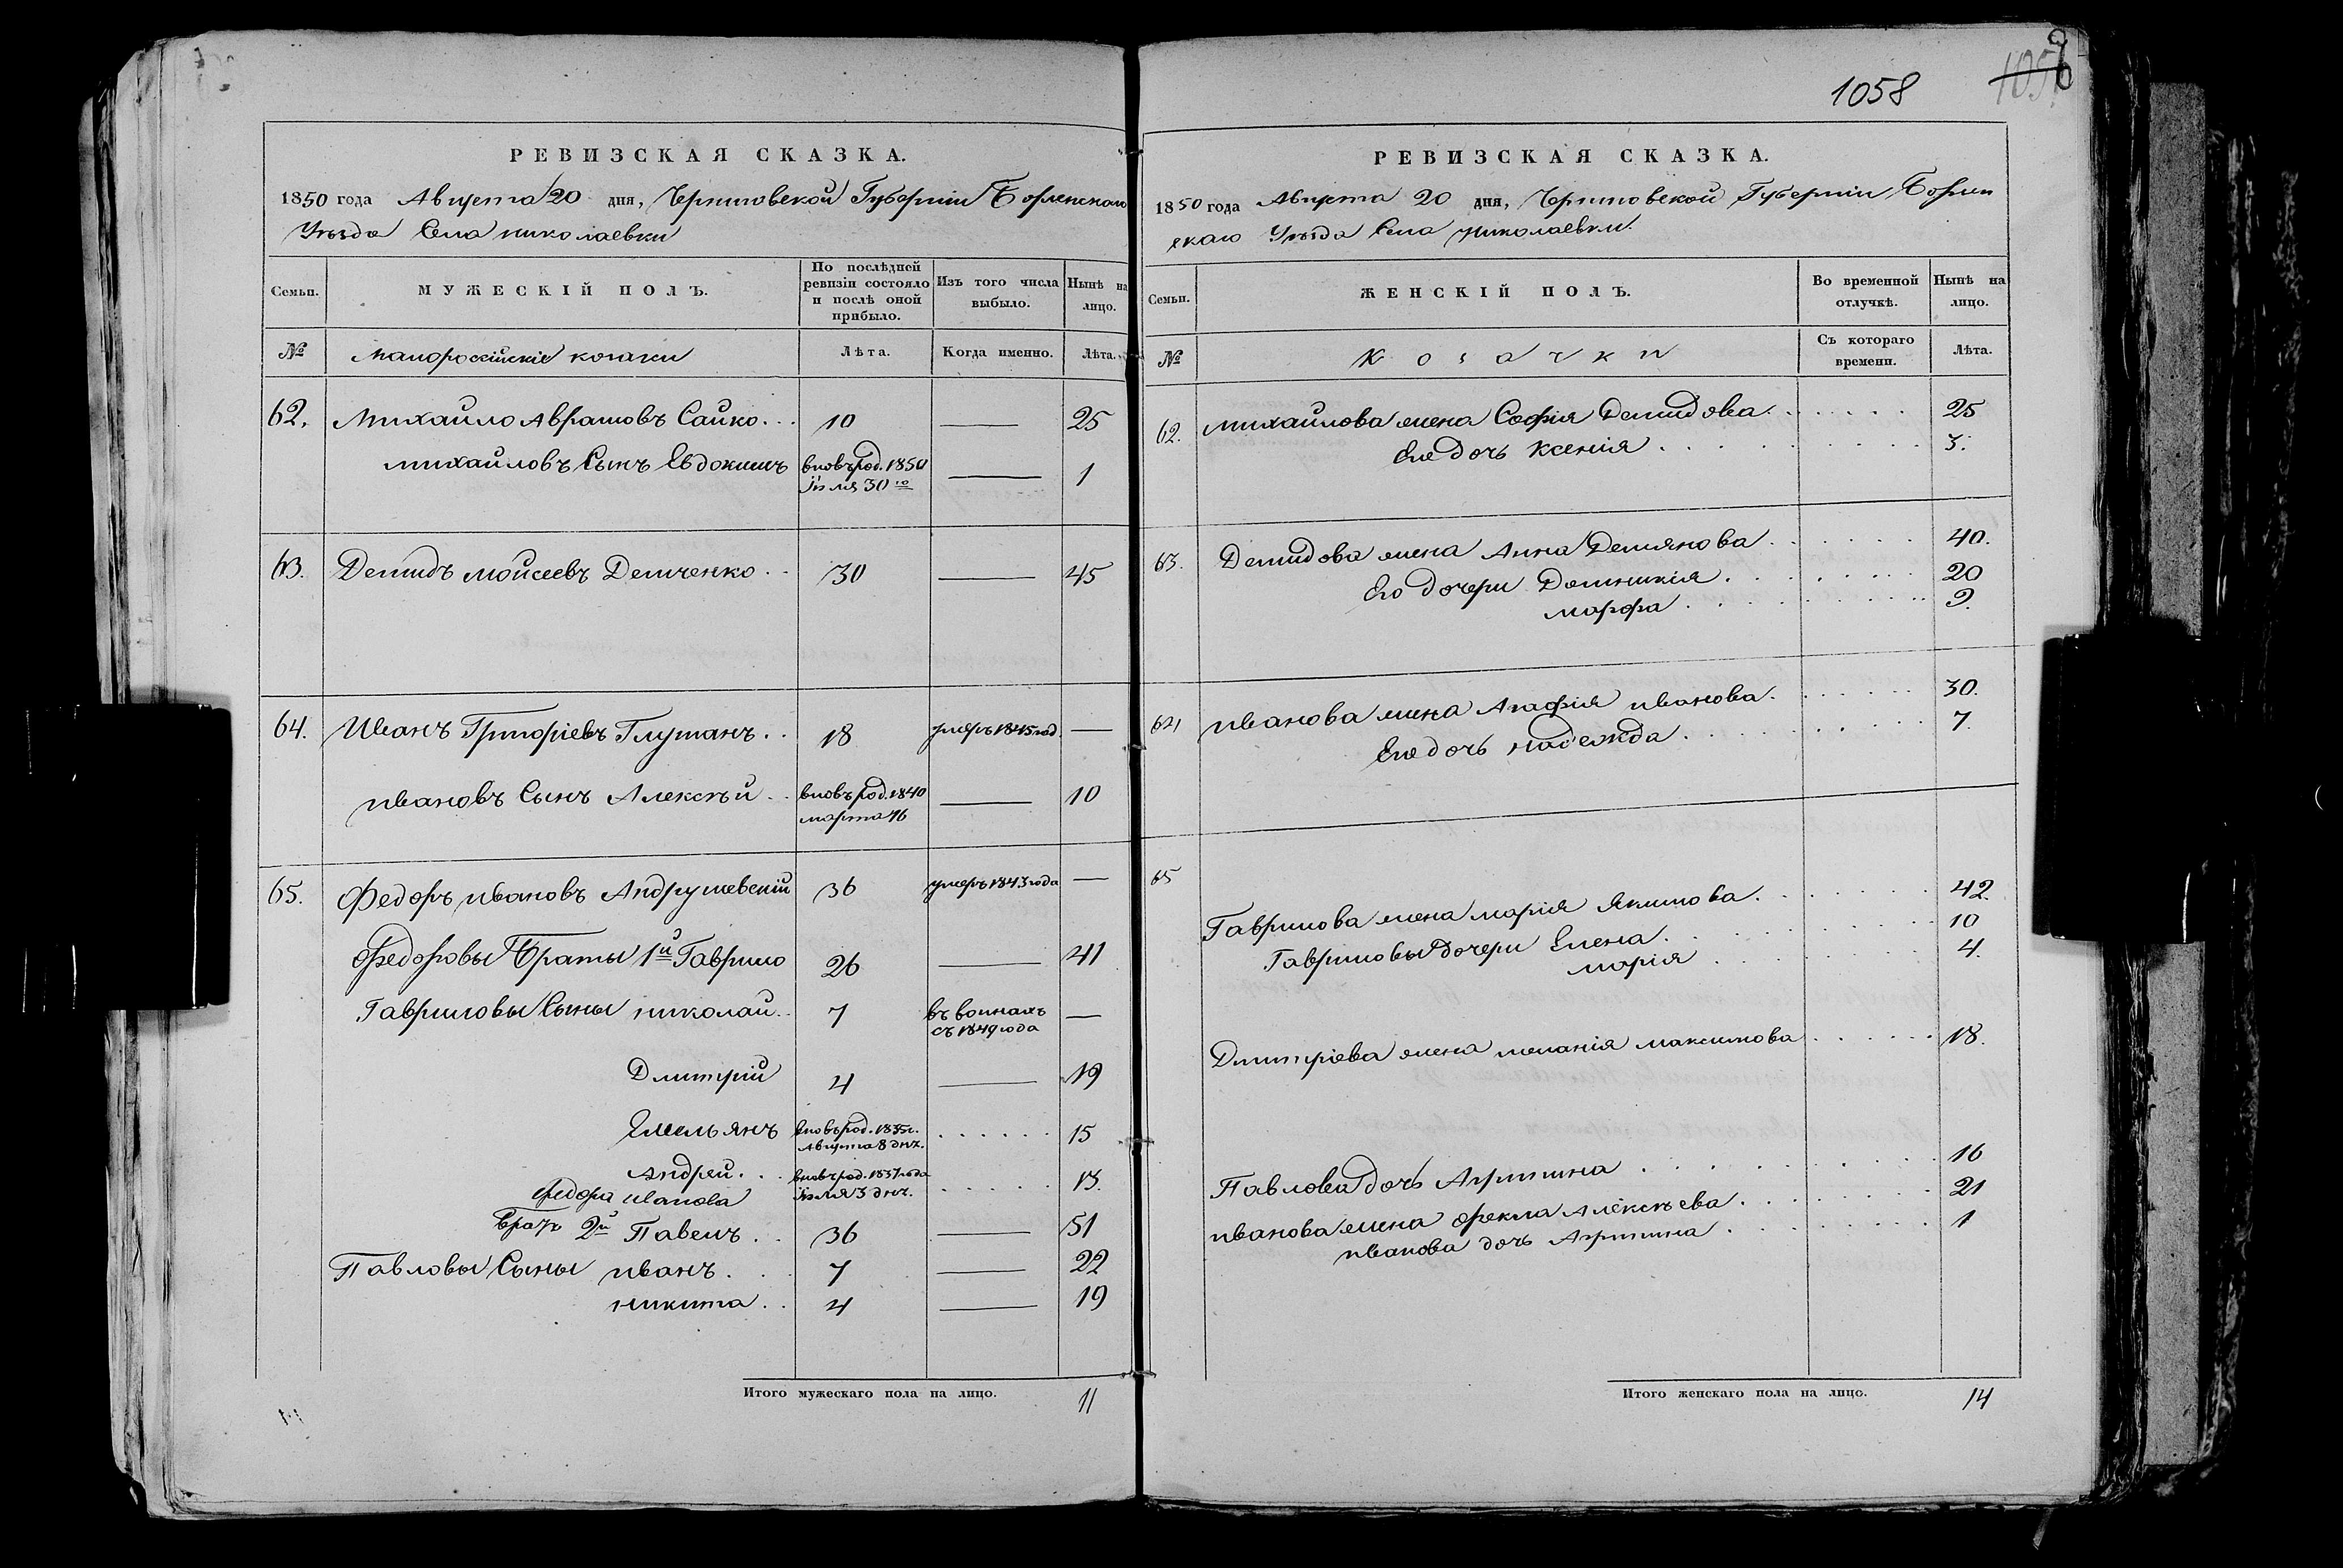 РЕВИЗСКАЯ СКАЗКА.
1850 года Августа 20 дня, Черниговской Губерніи Борзенскаго
Уѣзда Села Николаевки
Семьи. МУЖЕСКІЙ ПОЛЪ. По послѣдней ревизіи состояло и послѣ оной прибыло. Изъ того числа выбыло. Нынѣ на лицо.
№ Малоросійскіе козаки Лѣта. Когда именно. Лѣта.
62. Михайло Аврамовъ Сайко... 10 — 25
Михайловъ Сынъ Евдокимъ вновь род. 1850 — 1
Іюля 30го
63. Демидъ Мойсеевъ Демченко.. 30 — 45
64. Иванъ Григоріевъ Глушакъ.. 18 умеръ 1845 год. —
Ивановъ Сынъ Алексѣй.. вновь род. 1840 — 10
марта 16
65. Федоръ Ивановъ Андрушевскій 36 умеръ 1843 года —
Федоровы Браты 1й Гаврило 26 — 41
Гавриловы Сыны Николай.. 7 въ воинахъ —
съ 1849 года
Дмитрій 4 — 19
Емельянъ вновь род. 1835 г. ...... 15
Августа 8 дня.
Андрей... вновь род. 1837 года ..... 13.
Федора Иванова Іюля 3 дня.
Братъ 2й Павелъ.. 36 — 51
Павловы Сыны Иванъ... 7 — 22
Никита.. 4 — 19
Итого мужескаго пола на лицо. 11
1058
РЕВИЗСКАЯ СКАЗКА.
1850 года Августа 20 дня, Черниговской Губерніи Борзен
скаго Уѣзда Села Николаевки.
Семьи. ЖЕНСКІЙ ПОЛЪ. Во временной отлучкѣ. Нынѣ на лицо.
№ Козачки Съ котораго времени. Лѣта.
62. Михайлова жена Софія Демидова....... 25
Его дочь Ксенія......... 3.
63. Демидова жена Анна Демянова....... 40.
Его дочери Домникія........ 20
Марфа.......... 9.
64 Иванова жена Агафія Иванова....... 30.
Его дочь Надежда......... 7.
65
Гаврилова жена Марія Якимова....... 42.
Гавриловы дочери Елена......... 10
Марія........ 4.
Дмитріева жена Меланія Максимова...... 18.
Павлова дочь Агрипина......... 16
Иванова жена Фекла Алексѣева........ 21
Иванова дочь Агрипина......... 1
Итого женскаго пола на лицо. 14